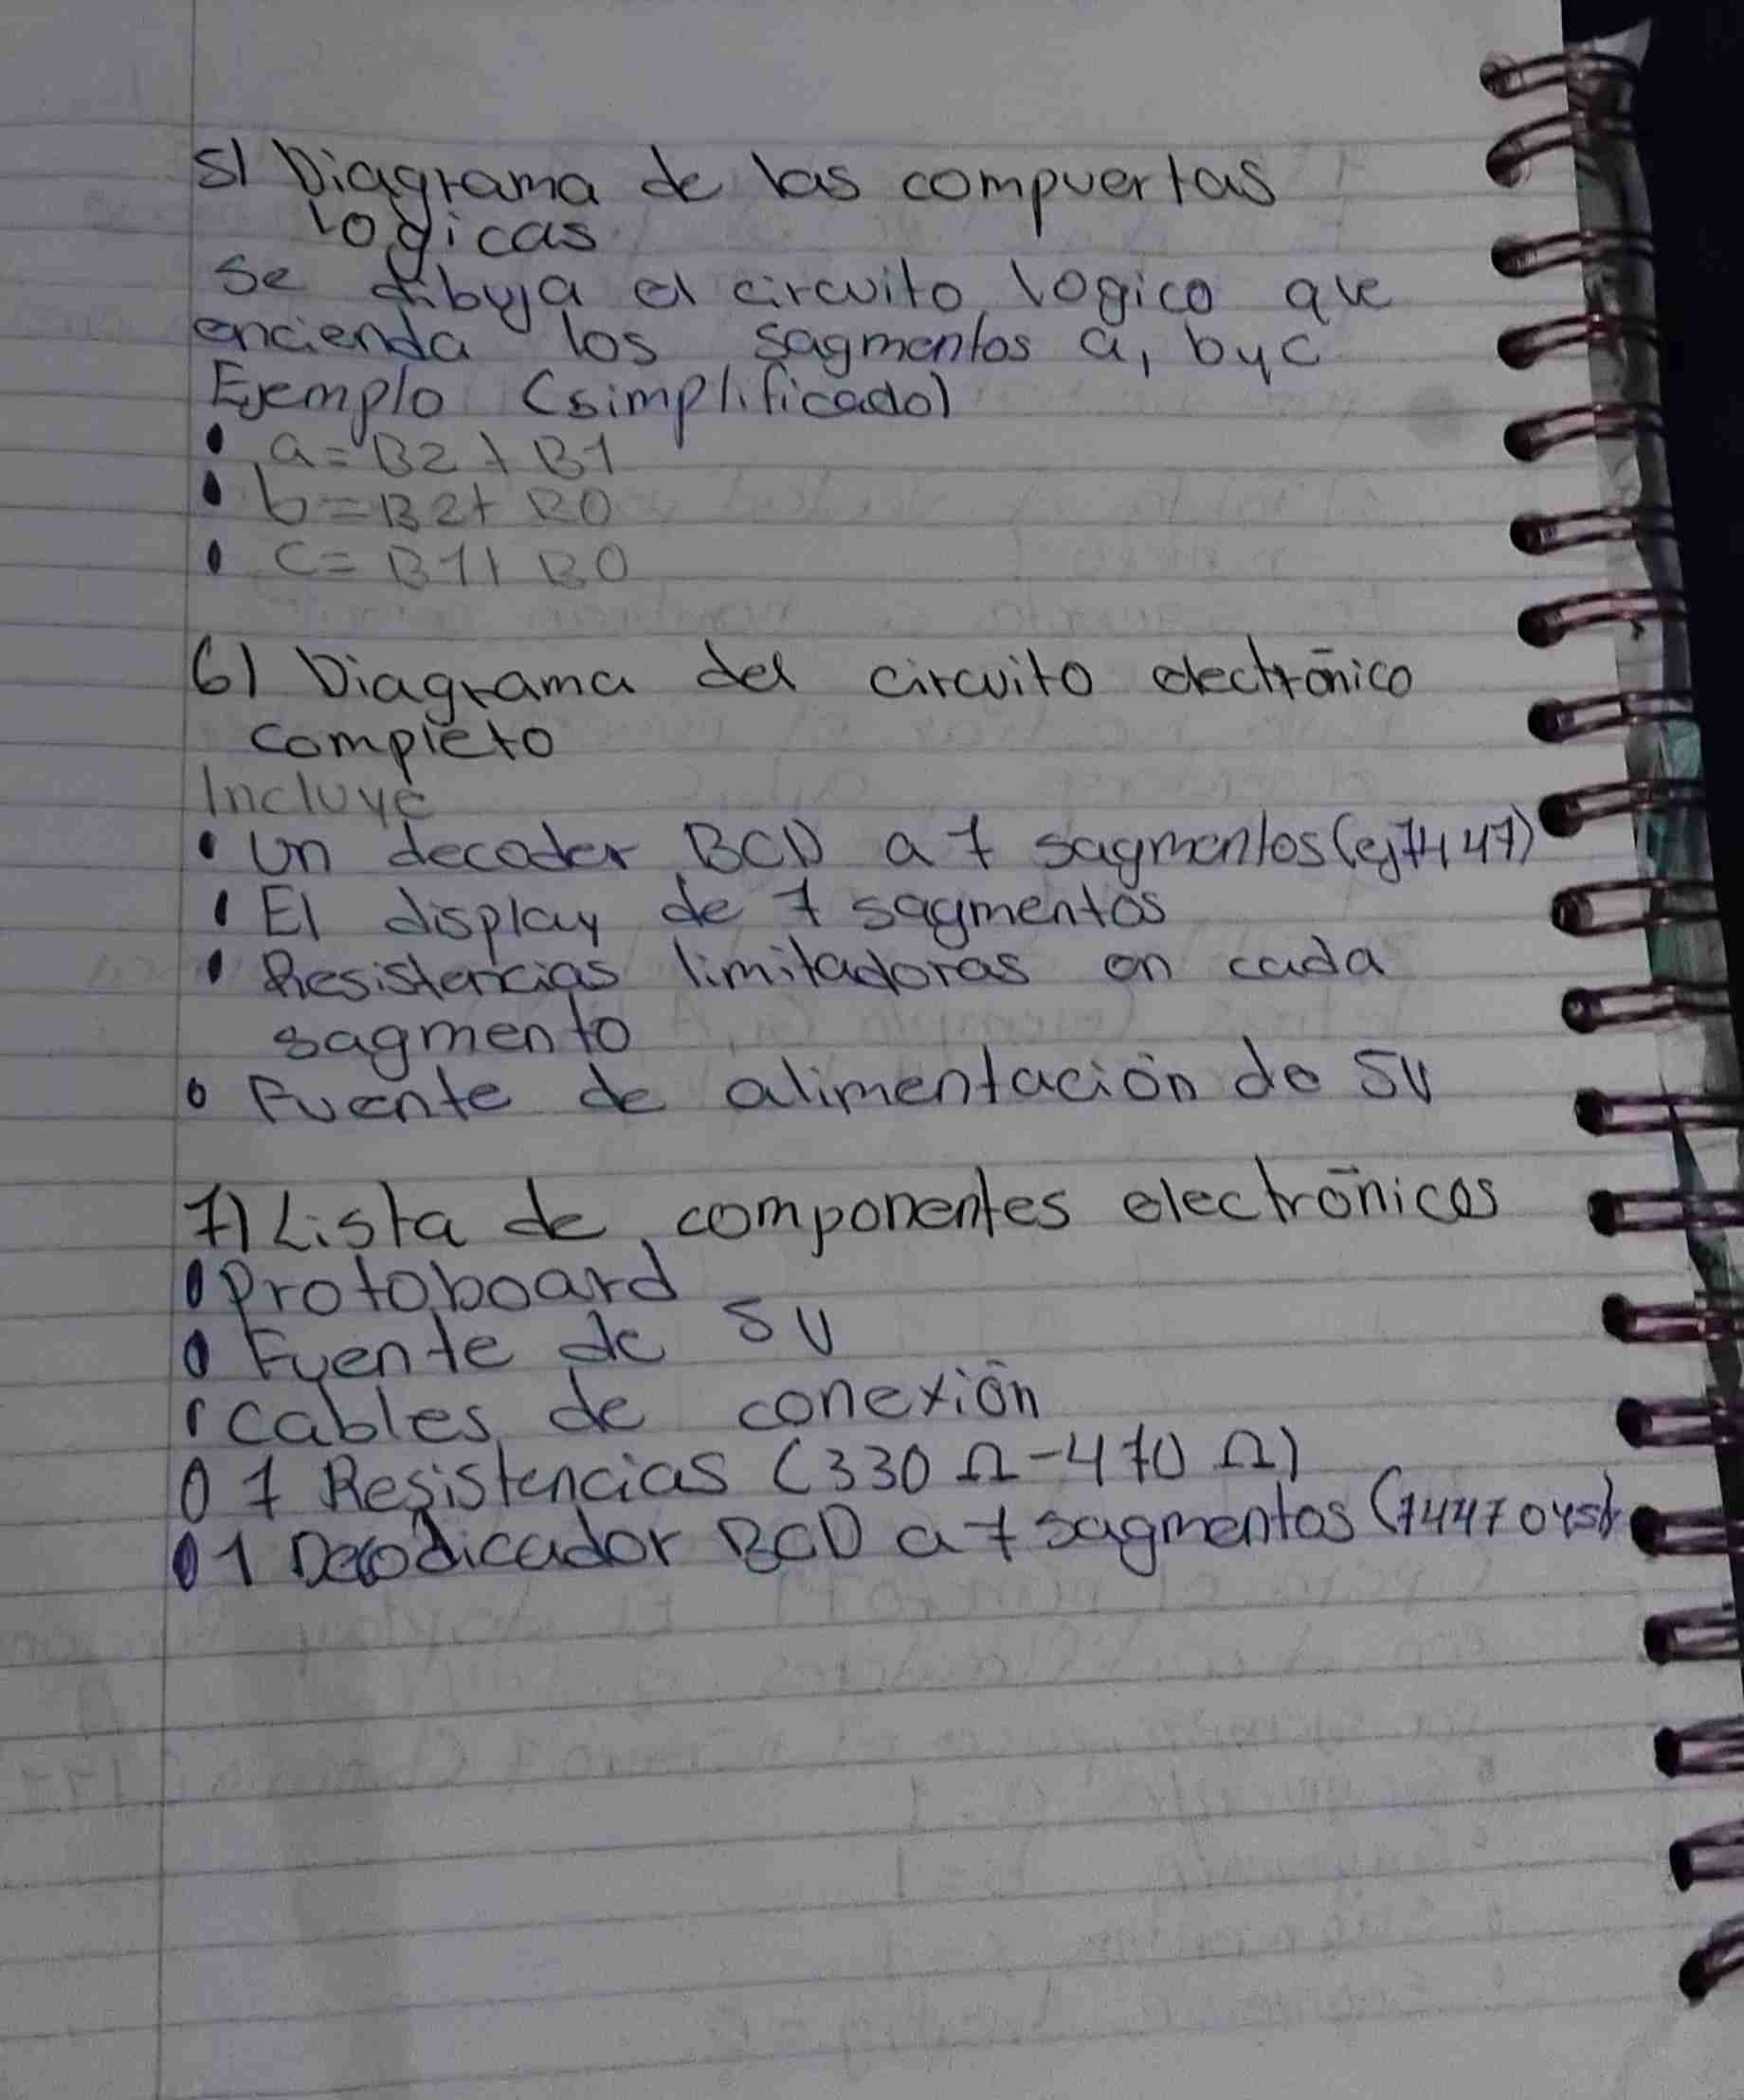 5) Diagrama de las compuertas
logicas
se dibuja el circuito logico que
encienda los sagmentos a, b y c
Ejemplo (simplificado)
• a = B2 + B1
• b = B2 + B0
• c = B1 + B0
6) Diagrama del circuito electrónico
completo
Incluye
• Un decoder BCD a 7 sagmentos (ej 7447)
• El display de 7 sagmentos
• Resistencias limitadoras en cada
sagmento
• Fuente de alimentación de 5V
7) Lista de componentes electrónicos
• Protoboard
• Fuente de 5V
• Cables de conexión
• 7 Resistencias (330 Ω - 470 Ω)
• 1 Decodicador BCD a 7 sagmentos (7447